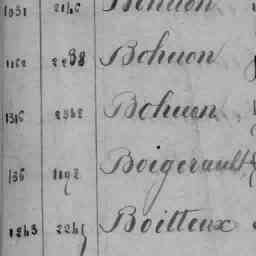 1051 2140 Bohuon
1162 2238 Bohuon
1316 2362 Bohuon
136 1192 Boigerault
1243 2241 Boitteux